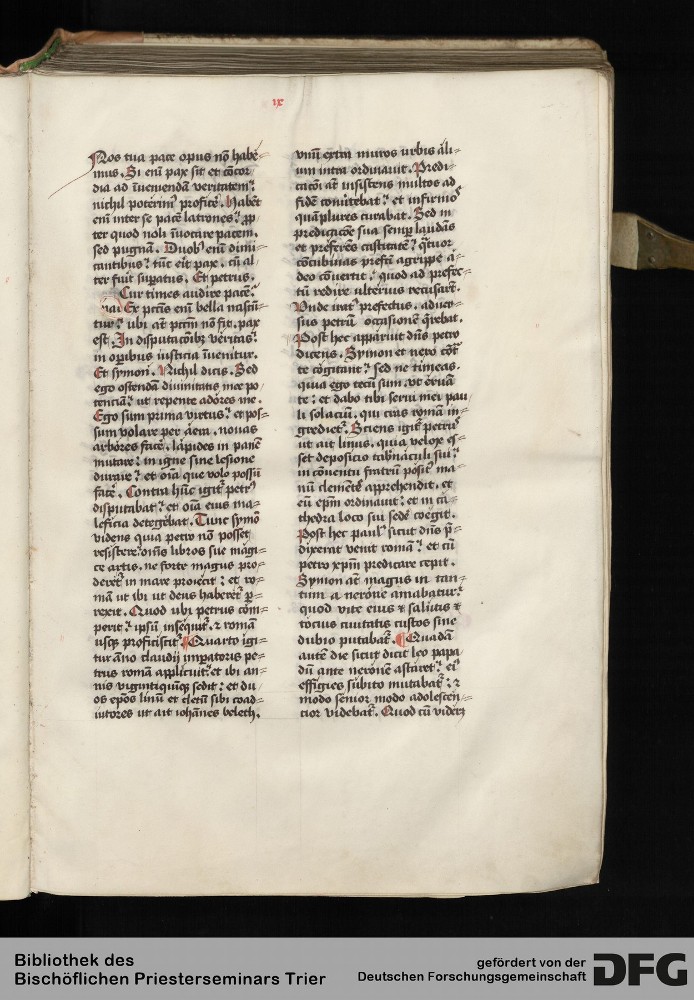 ix
Nos tua pace opus nō habe-
mus. Si enī pax sit et cōcor
dia ad īueniendā veritatem
nichil poterim' proficē. Habēt
enī inter se pacē latrones. pp
ter quod noli īuocare pacem,
sed pugnā. Duob' enī dimi-
cantibus tūc erit pax. cū al
ter fuit supatus. Et petrus.
Cur times audire pacē
Ex pctīs enī bella nascūt
tur. ubi at pctm nō fit. pax
est. In disputacōibz veritas
in opibus iusticia īuenitur.
Et symon. Nichil dicis. Sed
ego ostendā diuinitatis mee po
tenciā ut repente adores me.
Ego sum prima virtus et pos-
sum volare per aera. nouas
arbores facē. lapides in panē
mutare in igne sine lesione
durare et oīa que volo possū
facē. Contra hūc igit petr'
disputabat et oīa eius ma-
leficia detegebat. Tunc symō
videns quia petro nō posset
resistere oīns libros sue magi-
ce artis. ne forte magus pro-
deret in mare proiecit et ro-
mā ut ibi ut deus haberet p-
rexit. Quod ubi petrus com-
perit ipsū insequit. et romā
usqz proficiscit. Quarto igi-
tur āno claudii impatoris pe-
trus romā applicuit et ibi an-
nis vigintiquīqz sedit et du
os epos linū et cletū sibi coad-
iutores ut ait iohānes beleth.
vnū extra muros urbis ali-
um intra ordinauit. Predi-
cacōi at insistens multos ad
fidē conūtebat et infirmo'
quāplures curabat. Sed in
predicacōe sua semp laudans
et preferēs castitatē qtuor
cōcubinas prefti agrippe a-
deo conuertit quod ad prefec-
tū redire ulterius recusarēt.
Vnde irat' prefectus. aduer-
sus petrū occasionē qrebat.
Post hec apparuit dns petro
dicens. Symon et nero cōt
te cogitant sed ne timeas.
quia ego tecū sum. ut eruā
te et dabo tibi serui mei pau
li solaciū. qui cras romā in-
gredietr. Sciens igit petrus
ut ait linus. quia velox es-
set deposicio tabnaculi sui
in conuentu fratrū positus ma-
nū clemētē apprehendit. et
eū epm ordinauit et in ca-
thedra loco sui sedē coegit.
Post hec paul' sicut dns p-
dixerat venit romā et cū
petro xpm predicare cepit.
Symon at magus in tan-
tum a nerone amabatur
quod vite eius et salutis et
tocius ciuitatis custos sine
dubio putabat. Quadā
autē die sicut dicit leo papa
dū ante neronē astaret ei'
effigies subito mutabat et
modo senior modo adolescen-
cior videbat. Quod cū videns
Bibliothek des
Bischöflichen Priesterseminars Trier
gefördert von der
Deutschen Forschungsgemeinschaft
DFG